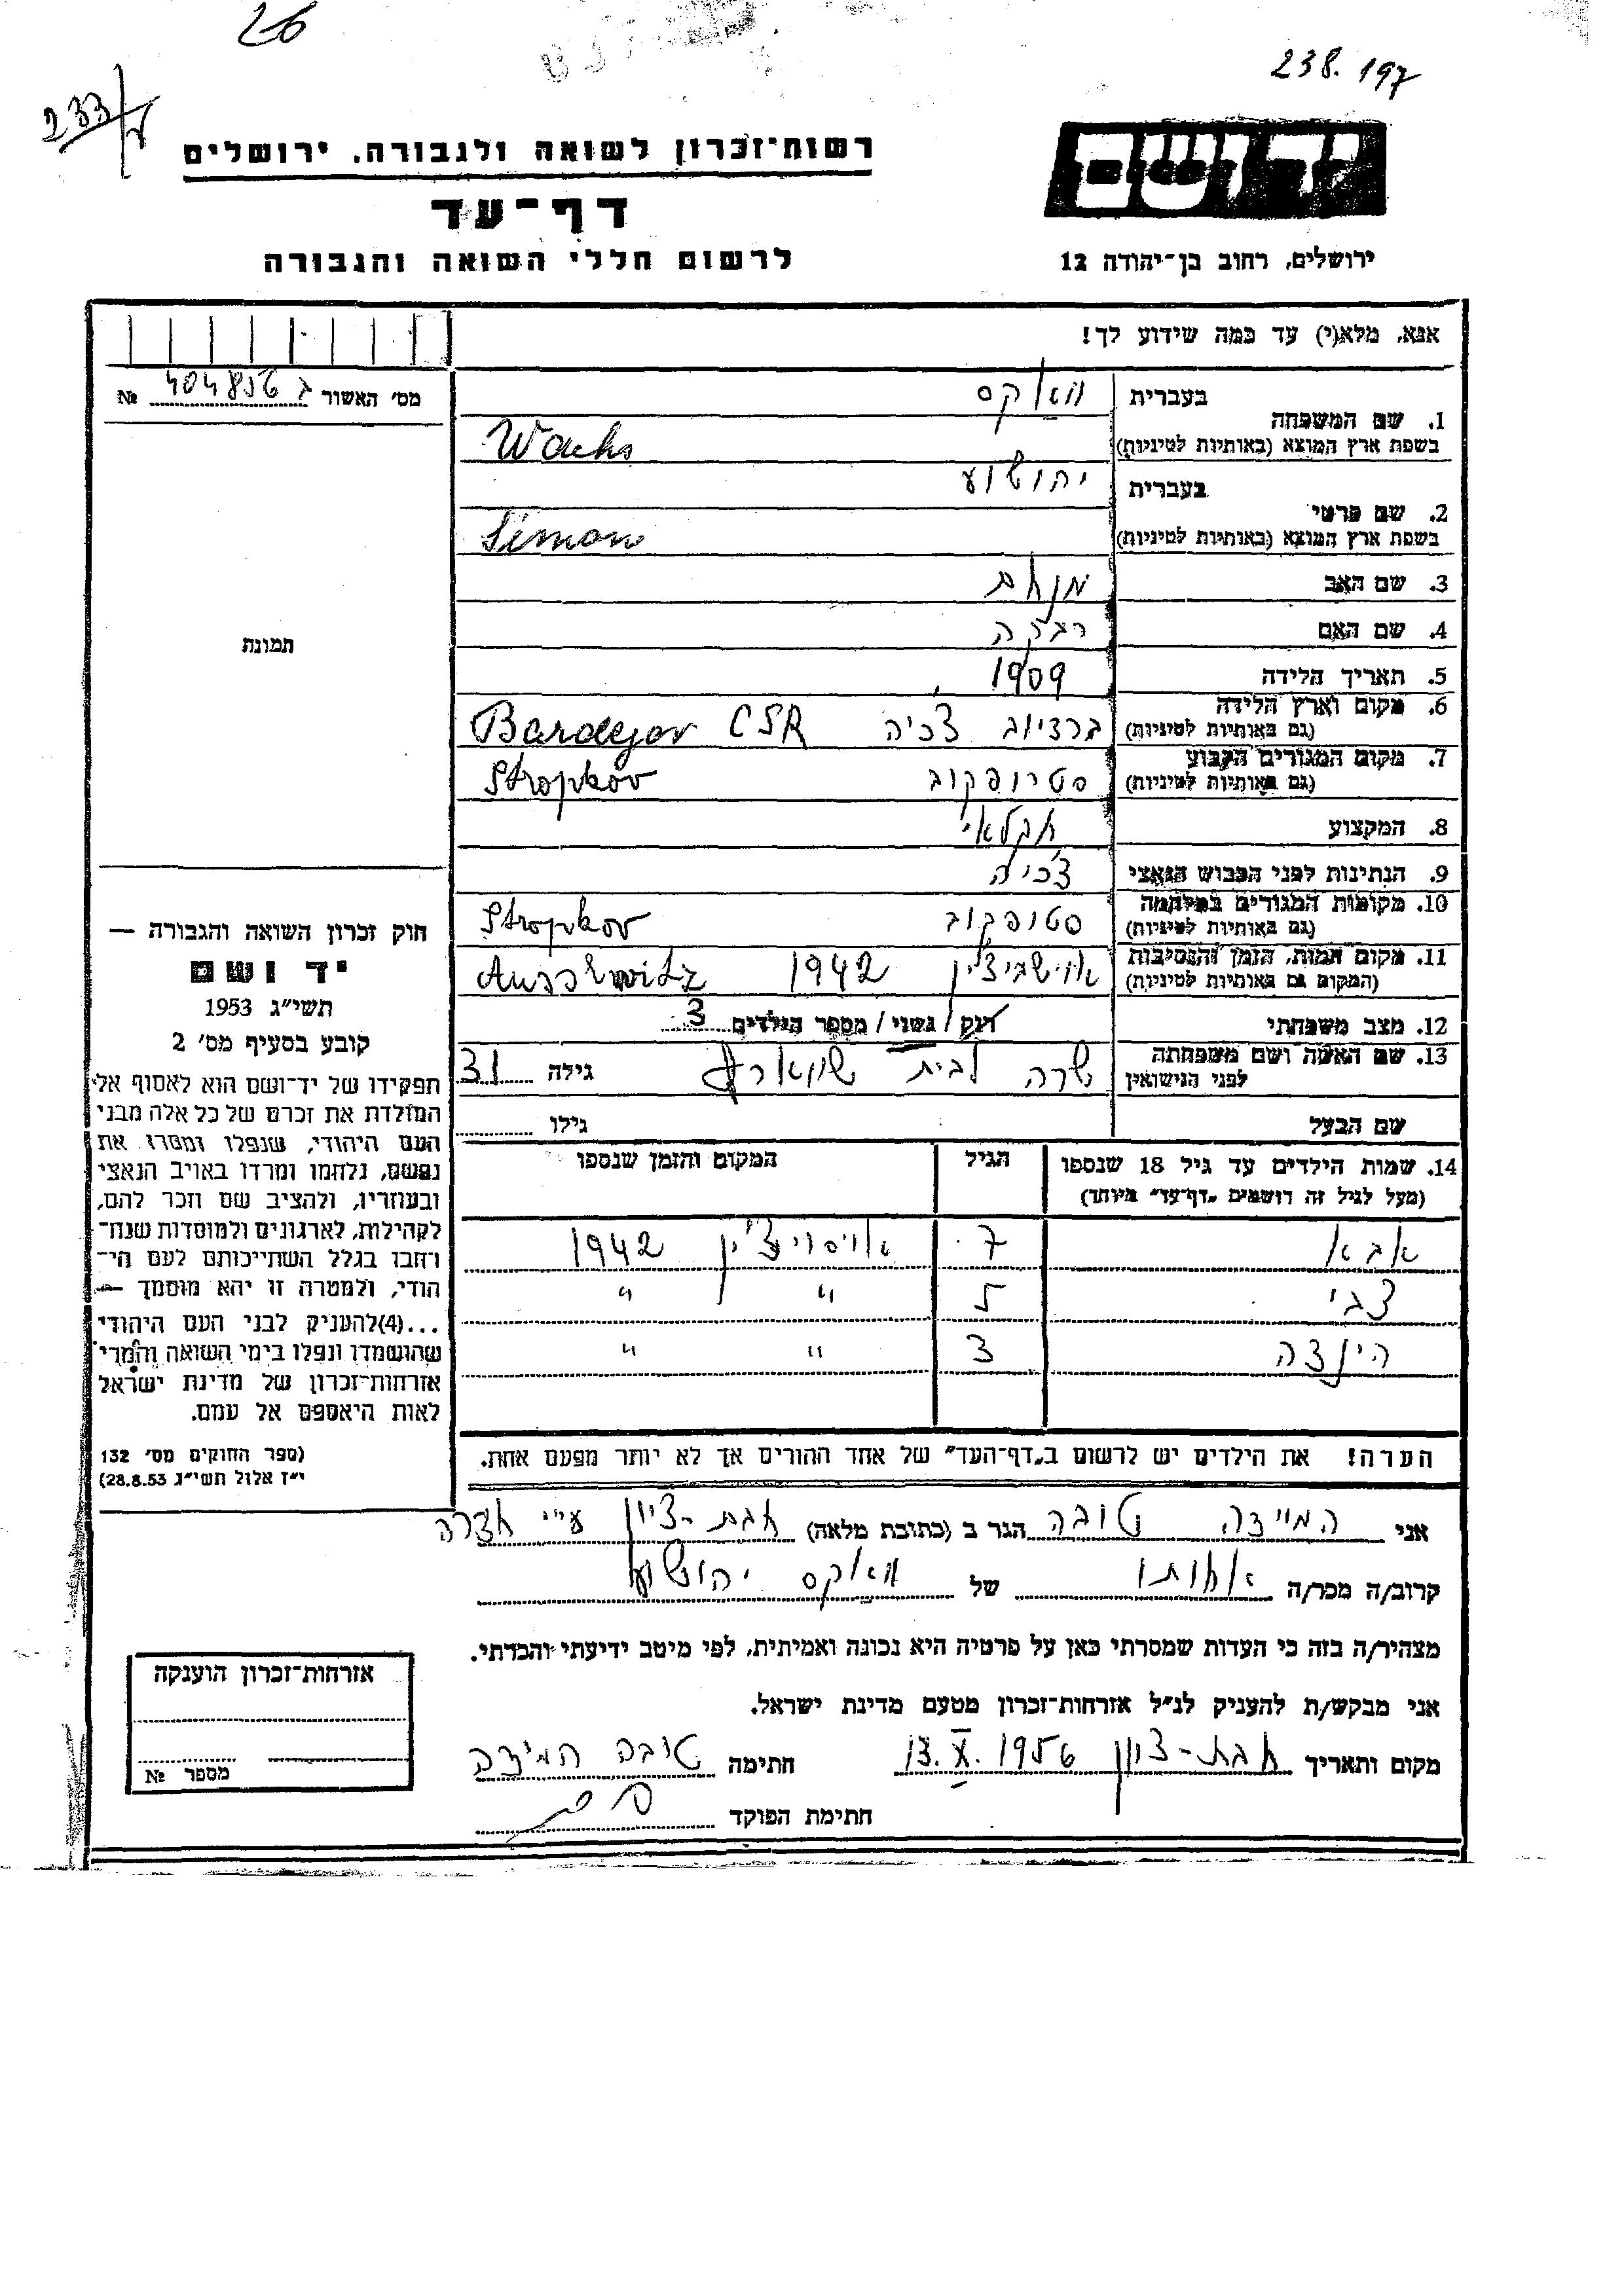 26
238.197
233/7
רשות־זכרון לשואה ולגבורה, ירושלים
יד ושם
דף־עד
לרשום חללי השואה והגבורה
ירושלים, רחוב בן־יהודה 12
אנא, מלא(י) עד כמה שידוע לך!
מס' האשור ג 404856 №
1. שם המשפחה
בעברית וואקס
בשפת ארץ המוצא (באותיות לטיניות) Wachs
2. שם פרטי
בעברית יהושוע
בשפת ארץ המוצא (באותיות לטיניות) Simon
3. שם האב מנחם
4. שם האם רבקה
5. תאריך הלידה 1909
6. מקום וארץ הלידה (גם באותיות לטיניות) ברדיוב צכיה Bardejov CSR
7. מקום המגורים הקבוע (גם באותיות לטיניות) סטרופקוב Stropkov
8. המקצוע חקלאי
9. הנתינות לפני הכבוש הנאצי צ'כיה
10. מקומות המגורים במלחמה (גם באותיות לטיניות) סטופקוב Stropkov
11. מקום המות, הזמן והנסיבות (המקום גם באותיות לטיניות) 1942 Auschwitz
12. מצב משפחתי רוק / נשוי / מספר הילדים 3
13. שם האשה ושם משפחתה לפני הנישואין שרה לבית שווארץ גילה 31
שם הבעל גילו
14. שמות הילדים עד גיל 18 שנספו (מעל לגיל זה רושמים "דף־עד" מיוחד) הגיל המקום והזמן שנספו
אבא 7 1942
צבי 5 " "
הינצה 3 " "
הערה! את הילדים יש לרשום ב"דף־העד" של אחד ההורים אך לא יותר מפעם אחת.
תמונה
חוק זכרון השואה והגבורה —
יד ושם
תשי"ג 1953
קובע בסעיף מס' 2
תפקידו של יד־ושם הוא לאסוף אל
המולדת את זכרם של כל אלה מבני
העם היהודי, שנפלו ומסרו את
נפשם, נלחמו ומרדו באויב הנאצי
ובעוזריו, ולהציב שם וזכר להם,
לקהילות, לארגונים ולמוסדות שנח־
רבו בגלל השתייכותם לעם הי־
הודי, ולמטרה זו יהא מוסמך —
...(4) להעניק לבני העם היהודי
שהושמדו ונפלו בימי השואה והמרי
אזרחות־זכרון של מדינת ישראל
לאות היאספם אל עמם.
(ספר החוקים מס' 132
י"ז אלול תשי"ג 28.8.53)
אני המיידה טובה הגר ב (כתובת מלאה) חבת-ציון ע"י חדרה
קרוב/ה מכר/ה אחותו של וואקס יהושוע
מצהיר/ה בזה כי העדות שמסרתי כאן על פרטיה היא נכונה ואמיתית, לפי מיטב ידיעתי והכרתי.
אני מבקש/ת להעניק לנ"ל אזרחות־זכרון מטעם מדינת ישראל.
מקום ותאריך חבת-ציון 13.X.1956 חתימה
חתימת הפוקד
אזרחות־זכרון הוענקה
מספר №